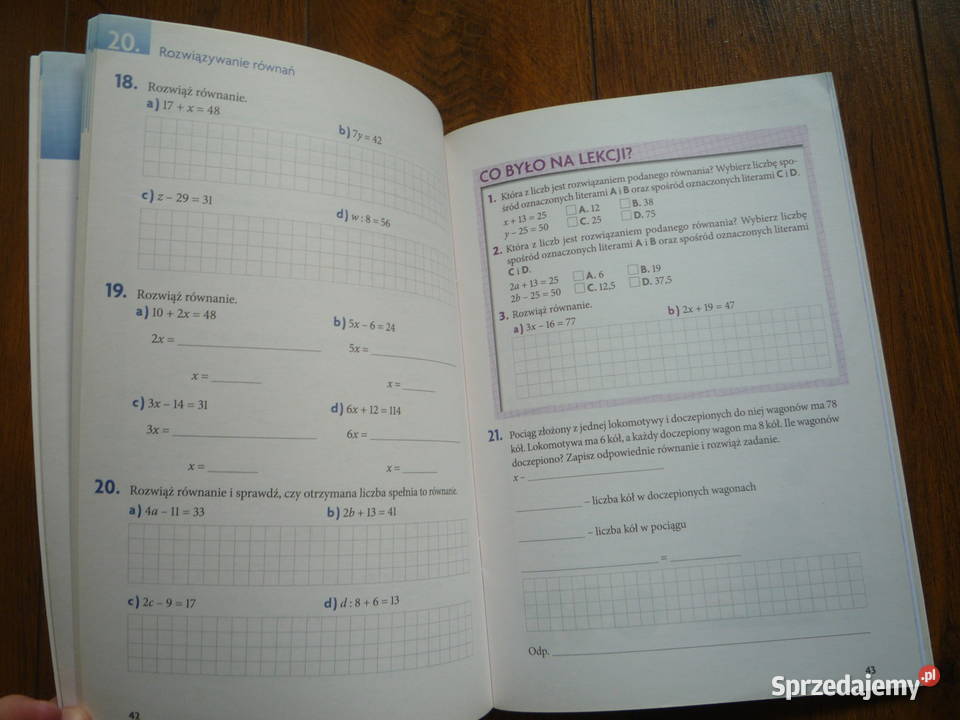 20.
Rozwiązywanie równań
18. Rozwiąż równanie.
a) 17 + x = 48
b) 7y = 42
c) z – 29 = 31
d) w : 8 = 56
19. Rozwiąż równanie.
a) 10 + 2x = 48
b) 5x – 6 = 24
2x =
5x =
x =
x =
c) 3x – 14 = 31
d) 6x + 12 = 114
3x =
6x =
x =
x =
20. Rozwiąż równanie i sprawdź, czy otrzymana liczba spełnia to równanie.
a) 4a – 11 = 33
b) 2b + 13 = 41
c) 2c – 9 = 17
d) d : 8 + 6 = 13
42
CO BYŁO NA LEKCJI?
1. Która z liczb jest rozwiązaniem podanego równania? Wybierz liczbę spo-
śród oznaczonych literami A i B oraz spośród oznaczonych literami C i D.
x + 13 = 25 A. 12 B. 38
y – 25 = 50 C. 25 D. 75
2. Która z liczb jest rozwiązaniem podanego równania? Wybierz liczbę
spośród oznaczonych literami A i B oraz spośród oznaczonych literami
C i D.
2a + 13 = 25 A. 6 B. 19
2b – 25 = 50 C. 12,5 D. 37,5
3. Rozwiąż równanie.
a) 3x – 16 = 77
b) 2x + 19 = 47
21. Pociąg złożony z jednej lokomotywy i doczepionych do niej wagonów ma 78
kół. Lokomotywa ma 6 kół, a każdy doczepiony wagon ma 8 kół. Ile wagonów
doczepiono? Zapisz odpowiednie równanie i rozwiąż zadanie.
x –
– liczba kół w doczepionych wagonach
– liczba kół w pociągu
=
Odp.
43
Sprzedajemy.pl